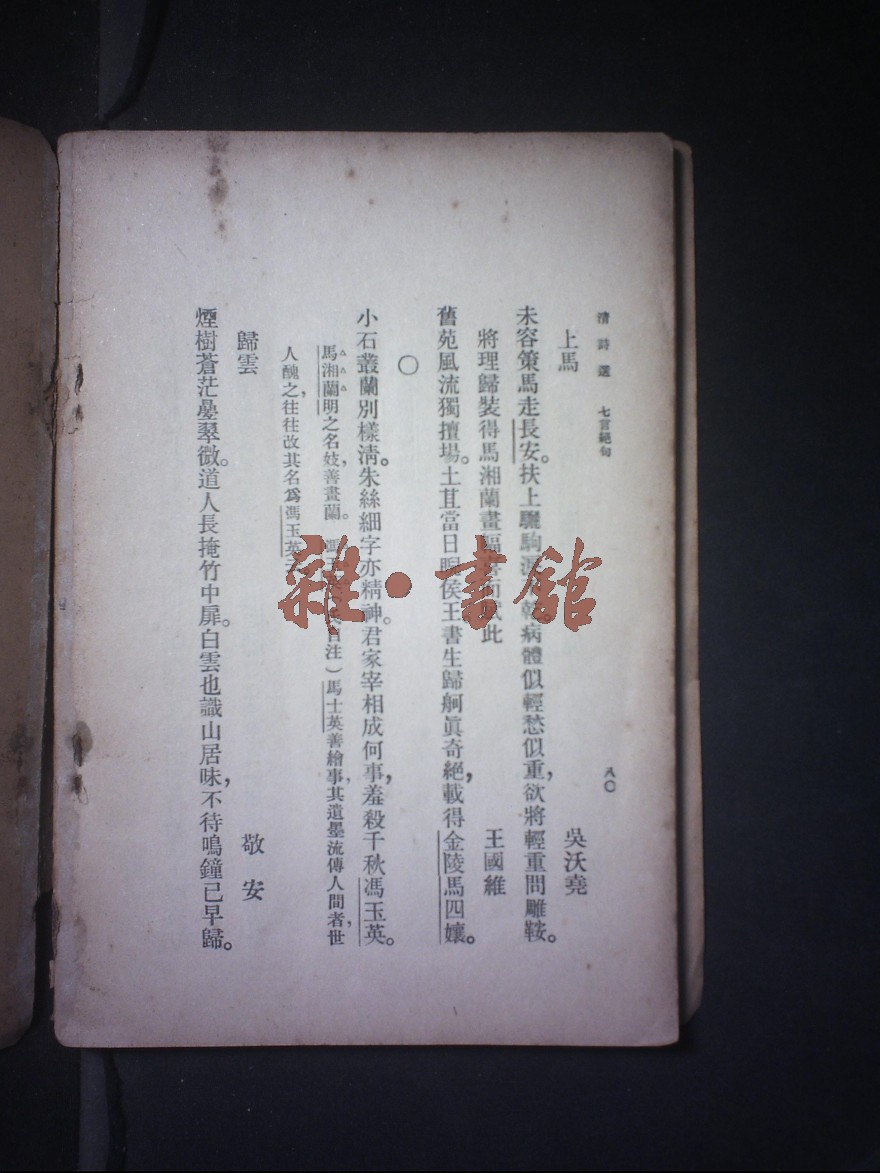 清詩選 七言絕句 八〇
上馬 吳沃堯
未容策馬走長安。扶上驪駒淚病體似輕愁似重，欲將輕重問雕鞍。
將理歸裝得馬湘蘭畫幅此 王國維
舊苑風流獨擅場。土苴當日睨侯王書生歸舸眞奇絕，載得金陵馬四孃。
〇
小石叢蘭別樣淸。朱絲細字亦精神。君家宰相成何事，羞殺千秋馮玉英。
馬湘蘭明之名妓，善畫蘭。馮自注）馬士英善繪事，其遺墨流傳人間者，世
人醜之，往往改其名爲馮玉英
歸雲 敬安
煙樹蒼茫曡翠微。道人長掩竹中扉。白雲也識山居味，不待鳴鐘已早歸。
雜·書館